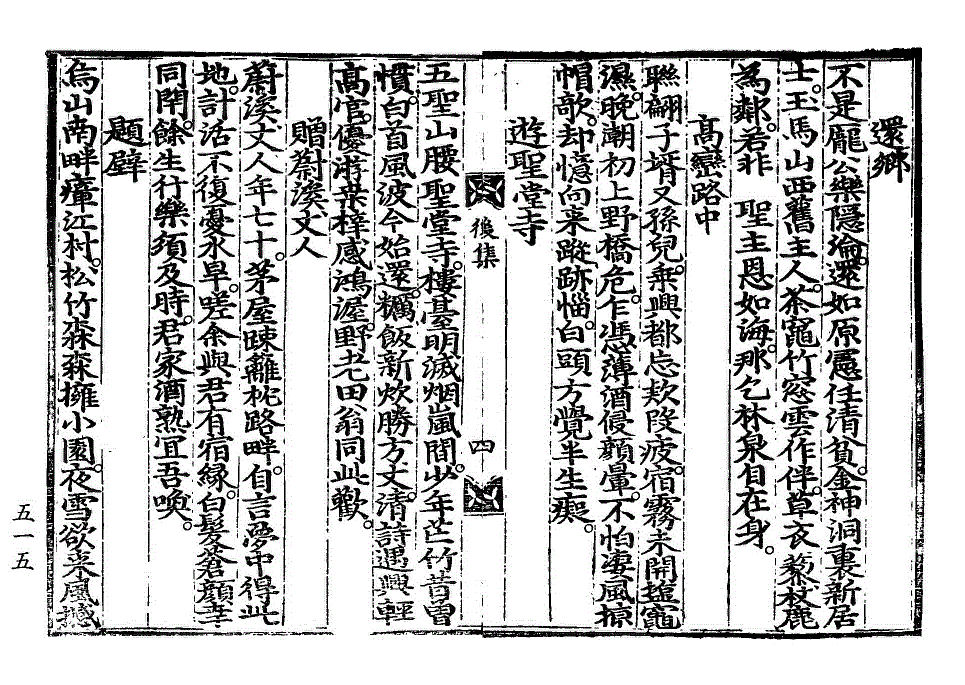 還鄕
不是龐公樂隱淪。還如原憲任清貧。金神洞裏新居
士。玉馬山西舊主人。茶竈竹窓雲作伴。草衣藜杖鹿
爲鄰。若非 聖主恩如海。那乞林泉自在身。
高巒路中
聯翩子壻又孫兒。乘興都忘欵段疲。宿霧未開塩竈
濕。晚潮初上野橋危。乍憑薄酒侵顏暈。不怕凄風掠
帽欹。却憶向來蹤跡惱。白頭方覺半生癡。
遊聖堂寺
後集
四
五聖山腰聖堂寺。樓臺明滅烟嵐間。少年芒竹昔曾
慣。白首風波今始還。糲飯新炊勝方丈。清詩遇興輕
高官。優游桒梓感鴻渥。野老田翁同此歡。
贈蔚溪丈人
蔚溪丈人年七十。茅屋踈籬枕路畔。自言夢中得此
地。計活不復憂水旱。嗟余與君有宿緣。白髮蒼顏幸
同閈。餘生行樂須及時。君家酒熟宜吾喚。
題壁
烏山南畔瘴江村。松竹森森擁小園。夜雪欲來風撼
五一五